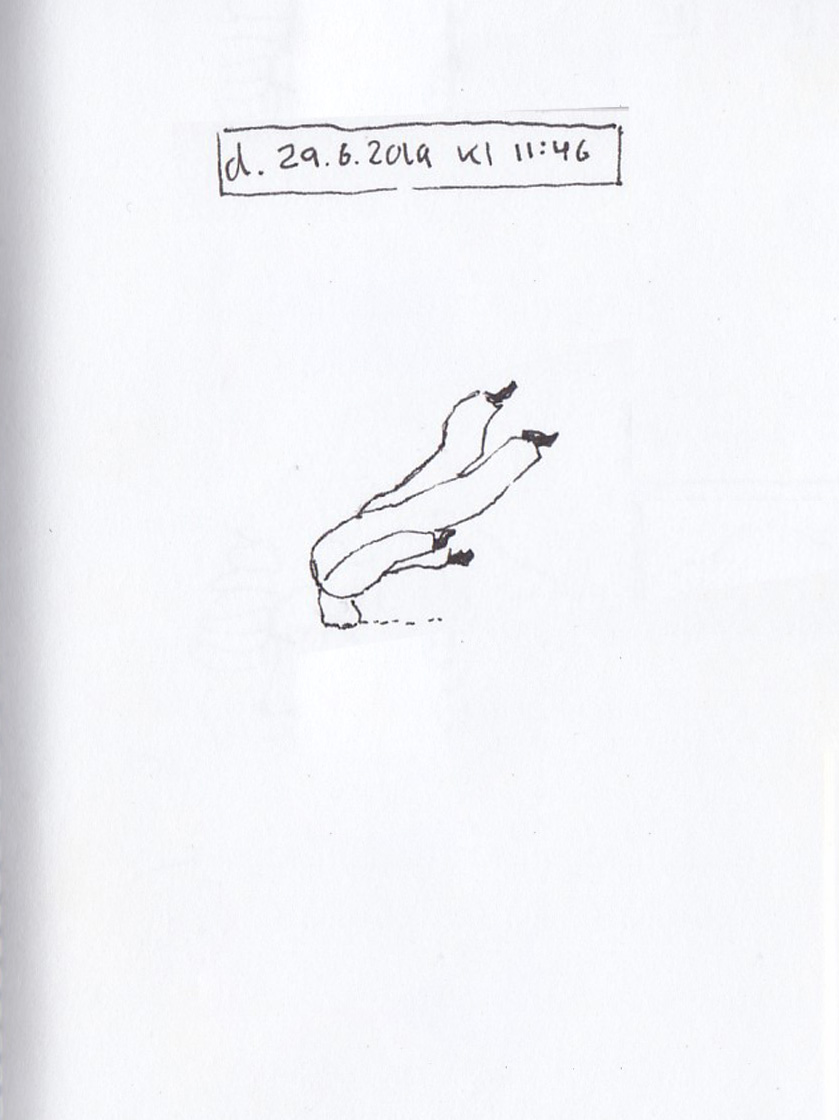 d. 29.6.2019 kl 11:46